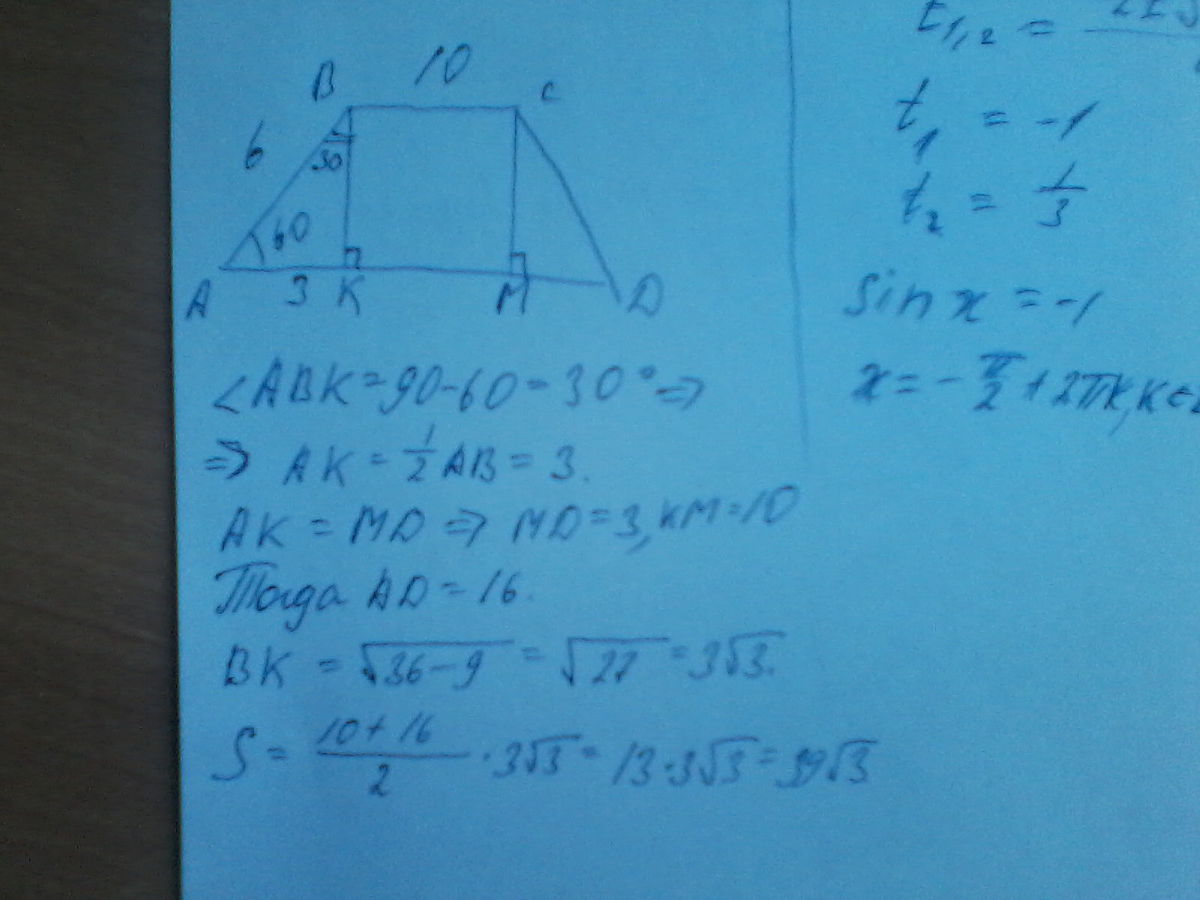 B 10 C
6
30
60
A 3 K M D
∠ABK = 90 - 60 = 30° ⇒
⇒ AK = 1/2 AB = 3.
AK = MD ⇒ MD = 3, KM = 10
Тогда AD = 16.
BK = √36 - 9 = √27 = 3√3.
S = 10 + 16 / 2 · 3√3 = 13 · 3√3 = 39√3
t1,2 =
t1 = -1
t2 = 1/3
Sin x = -1
x = - π/2 + 2πk, k ∈